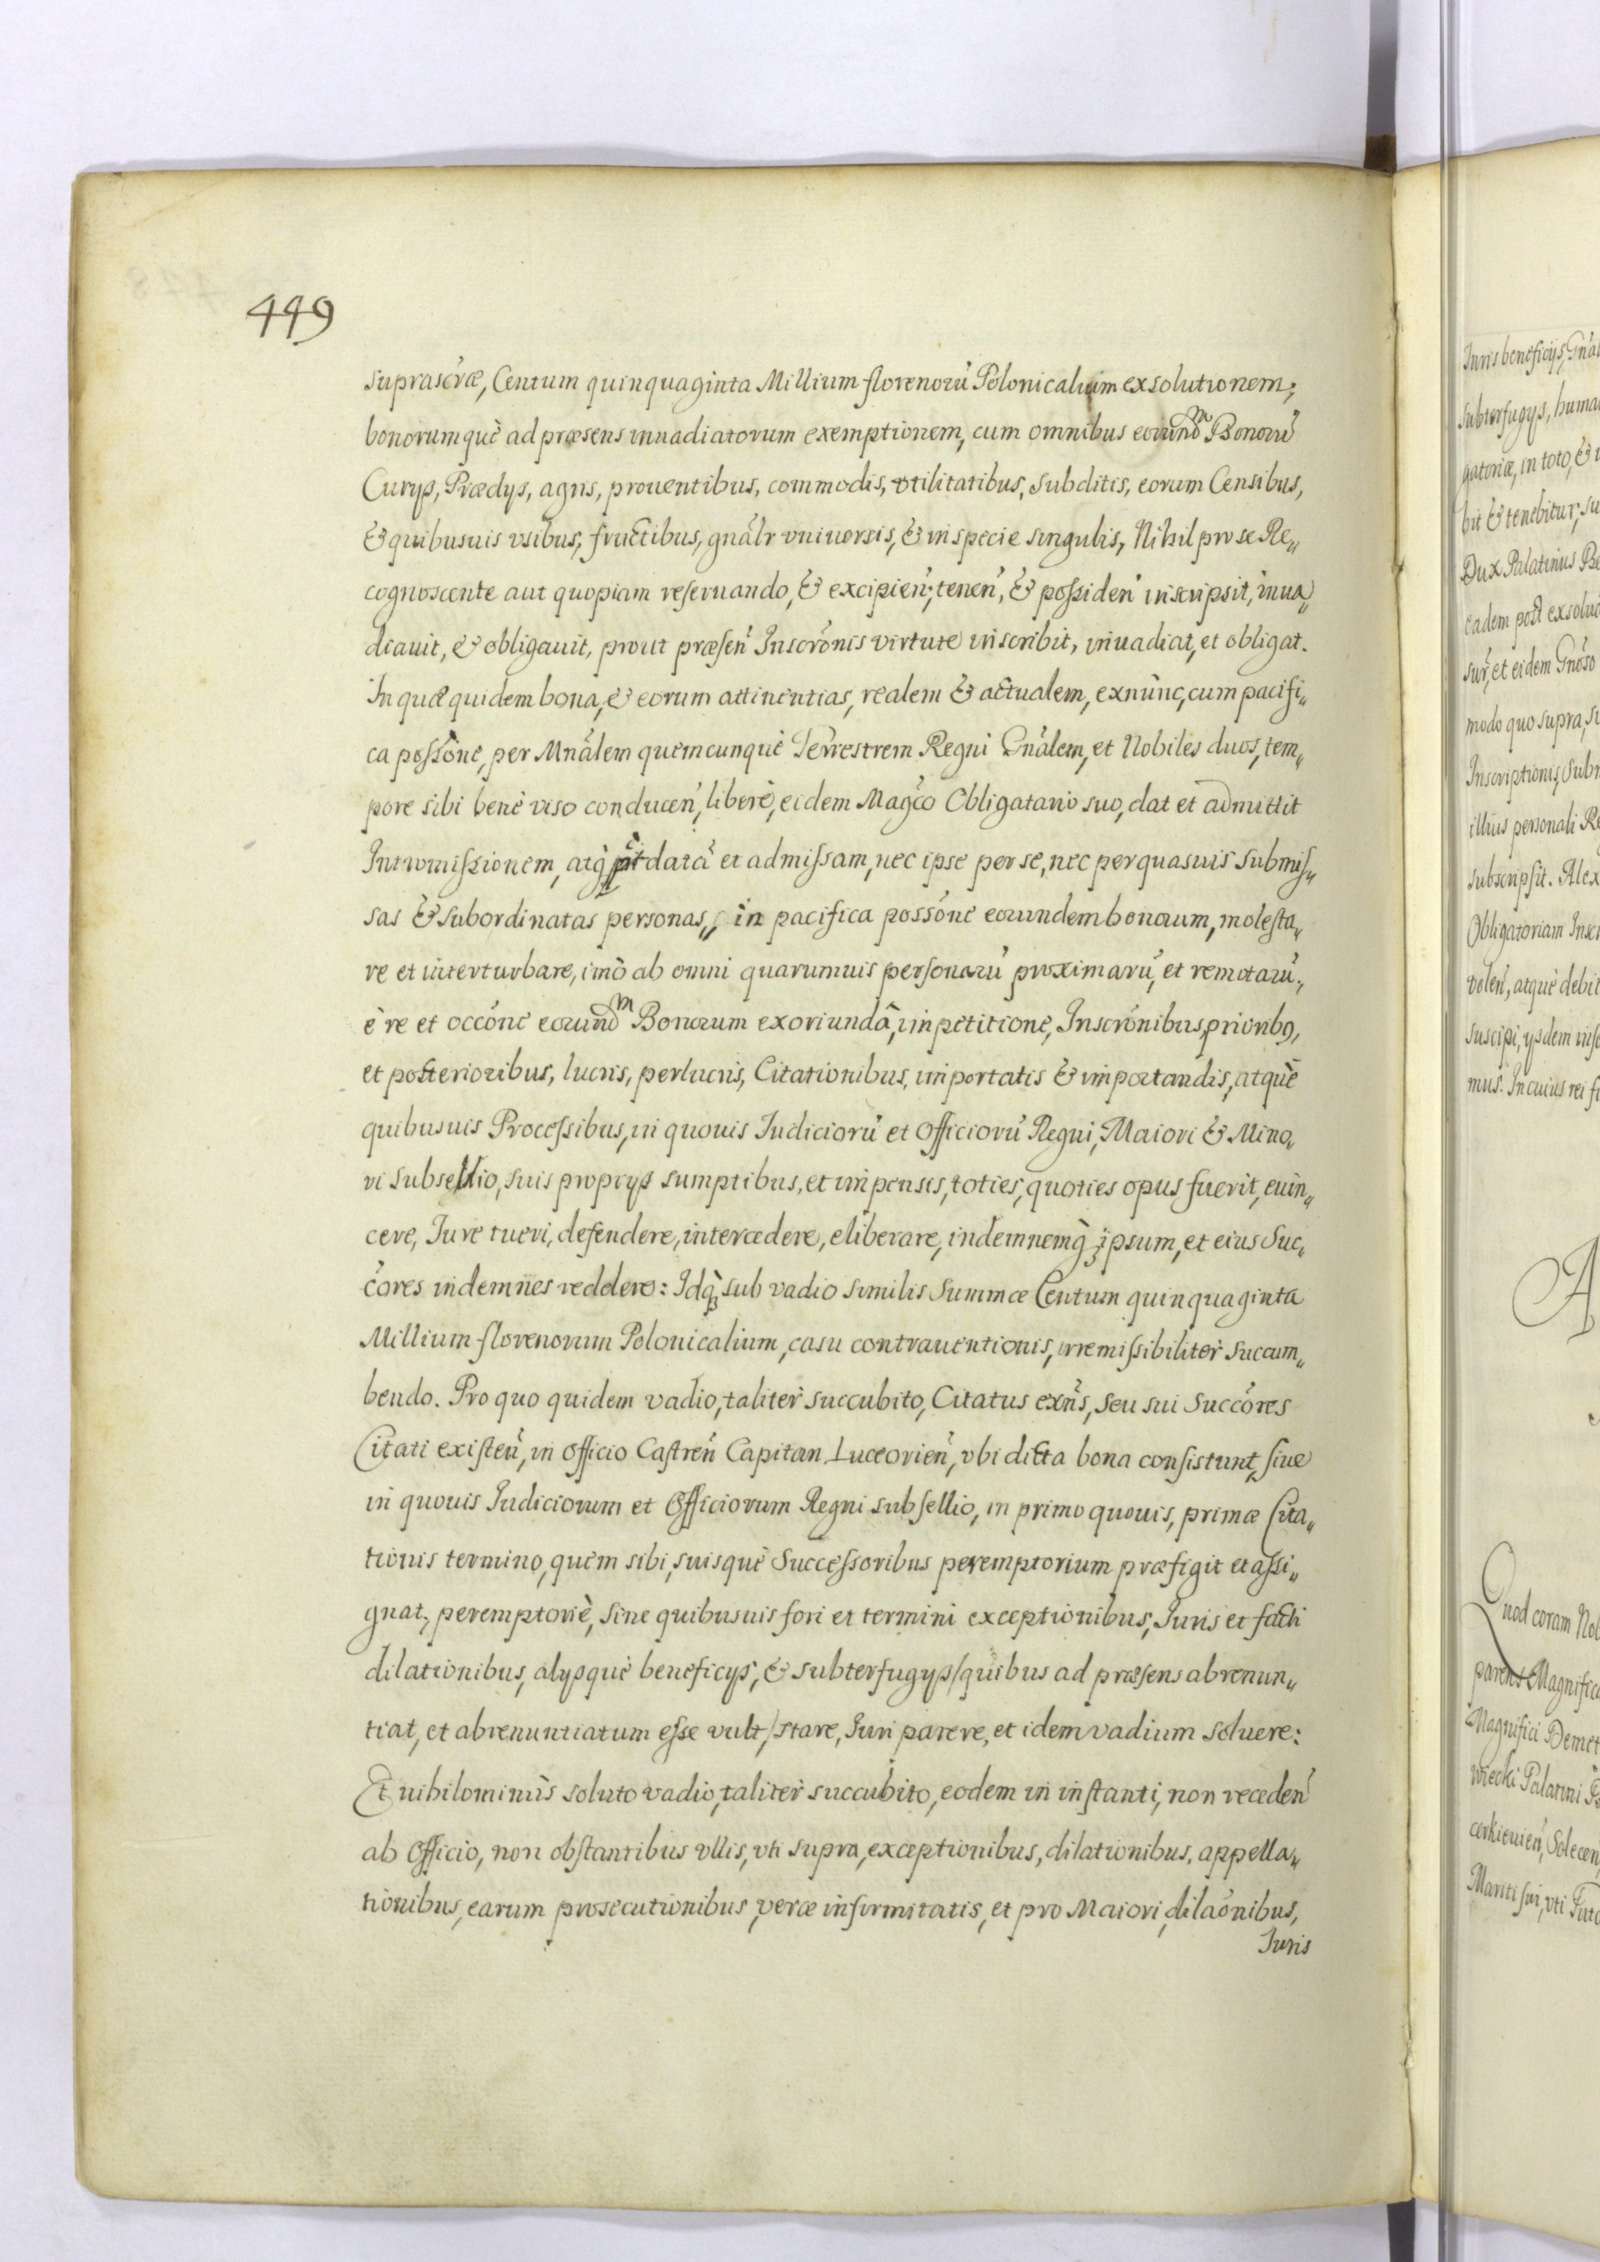 449
suprascr̃æ, Centum quinquaginta Millium florenorũ Polonicalium exsolutionem;
bonorumquè ad præsens inuadiatorum exemptionem, cum omnibus eorundm Bonorũ
Curÿs, Prædÿs, agris, prouentibus, commodis, vtilitatibus, subditis, eorum Censibus,
& quibusuis vsibus, fructibus, gnãlr vniuersis, & in specie singulis, Nihil pro se Re„
cognoscente aut quopiam reseruando, & excipien̄; tenen̄, & possiden̄ inscripsit, inua„
diauit, & obligauit, prout præsen̄ Inscrõnis virtute inscribit, inuadiat, et obligat.
In quæ quidem bona, & eorum attinentias, realem & actualem, exnunc, cum pacifi„
ca possõne, per Mnãlem quemcunquè Terrestrem Regni Gnãlem, et Nobiles duos, tem„
pore sibi benè viso conducen̄, liberè, eidem Magc̃o Obligatario suo, dat et admittit
Intromissionem, atq̀ datã et admissam, nec ipse per se, nec per quasuis submis„
sas & subordinatas personas„ in pacifica possõne eorundem bonorum, molesta„
re et interturbare, imò ab omni quarumuis personarũ proximarũ, et remotarũ,
è re et occõne eorundm Bonorum exoriundâ, impetitione, Inscrõnibus priorib9,
et posterioribus, lucris, perlucris, Citationibus, importatis & importandis, atquè
quibusuis Processibus, in quouis Iudiciorũ et Officiorũ Regni, Maiori & Mino„
ri subsellio, suis proprÿs sumptibus, et impensis, toties, quoties opus fuerit, euin„
cere, Iure tueri, defendere, intercedere, eliberare, indemnemq̀ ipsum, et eius Suc„
cõres indemnes reddere: Idq̀ sub vadio similis Summæ Centum quinquaginta
Millium florenorum Polonicalium, casu contrauentionis, irremissibilitèr succum„
bendo. Pro quo quidem vadio, talitèr succubito, Citatus exñs, seu sui Succõres
Citati existen̄, in Officio Castren̄ Capitan. Luceorien̄, vbi dicta bona consistunt, siue
in quouis Iudiciorum et Officiorum Regni subsellio, in primo quouis, primæ Cita„
tionis termino, quem sibi, suisquè Successoribus peremptorium præfigit et assi„
gnat, peremptoriè, sine quibusuis fori et termini exceptionibus, Iuris et facti
dilationibus, alÿsquè beneficÿs, & subterfugÿs /quibus ad præsens abrenun„
tiat, et abrenuntiatum esse vult,/ stare, Iuri parere, et idem vadium soluere:
Et nihilominùs soluto vadio, talitèr succubito, eodem in instanti, non receden̄
ab Officio, non obstantibus vllis, vti supra, exceptionibus, dilationibus, appella„
tionibus, earum prosecutionibus, veræ infirmitatis, et pro Maiori, dilaõnibus,
Iuris
Iuris beneficÿs,
subterfugÿs,
gatoriæ, in toto, &
bit & tenebitur,
Dux Palatinus
eadem post
et eidem Gnõso
modo quo supra,
Inscriptionis,
illius personali
subscripsit.
Obligatoriam
volen̄, atquè
suscipi, ÿsdem
mus. In cuius rei
A
Quod coram
Magnifici
wiecki Palatini
Mariti sui, vti